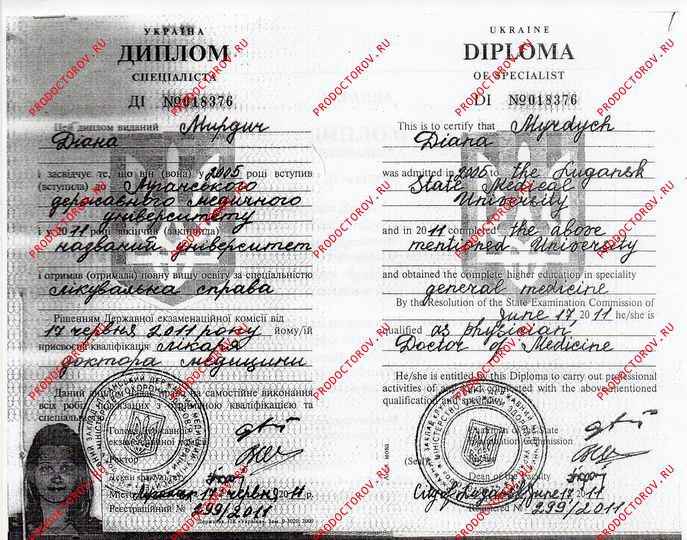 УКРАЇНА
ДИПЛОМ
СПЕЦІАЛІСТА
ДІ №018376
Цей диплом виданий Мирдич
Діана
і засвідчує те, що він (вона) у 2005 році вступив
(вступила) до Луганського
державного медичного
університету
і у 2011 році закінчив (закінчила)
названий університет
і отримав (отримала) повну вищу освіту за спеціальністю
лікувальна справа
Рішенням Державної екзаменаційної комісії від
17 червня 2011 року йому/їй
присвоєна кваліфікація лікаря
доктора медицини
Даний диплом дає право на самостійне виконання
всіх робіт, пов'язаних з отриманою кваліфікацією та
спеціальністю
Голова Державної
екзаменаційної комісії
Ректор
Декан факультету
Місто Луганськ 17 червня 2011 р.
Реєстраційний № 299/2011
UKRAINE
DIPLOMA
OF SPECIALIST
DI №018376
This is to certify that Myrdych
Diana
was admitted in 2005 to the Lugansk
State Medical
University
and in 2011 completed the above
mentioned University
and obtained the complete higher education in speciality
general medicine
By the Resolution of the State Examination Commission of
June 17 2011 he/she is
qualified as physician,
Doctor of Medicine
He/she is entitled by this Diploma to carry out professional
activities of any kind connected with the above-mentioned
qualification and speciality
Chairman of the State
Examination Commission
Rector
(Seal) Dean of the Faculty
City of Lugansk June 17 2011
Registered № 299/2011
PRODOCTOROV.RU